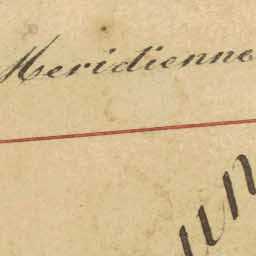 Meridienne
un